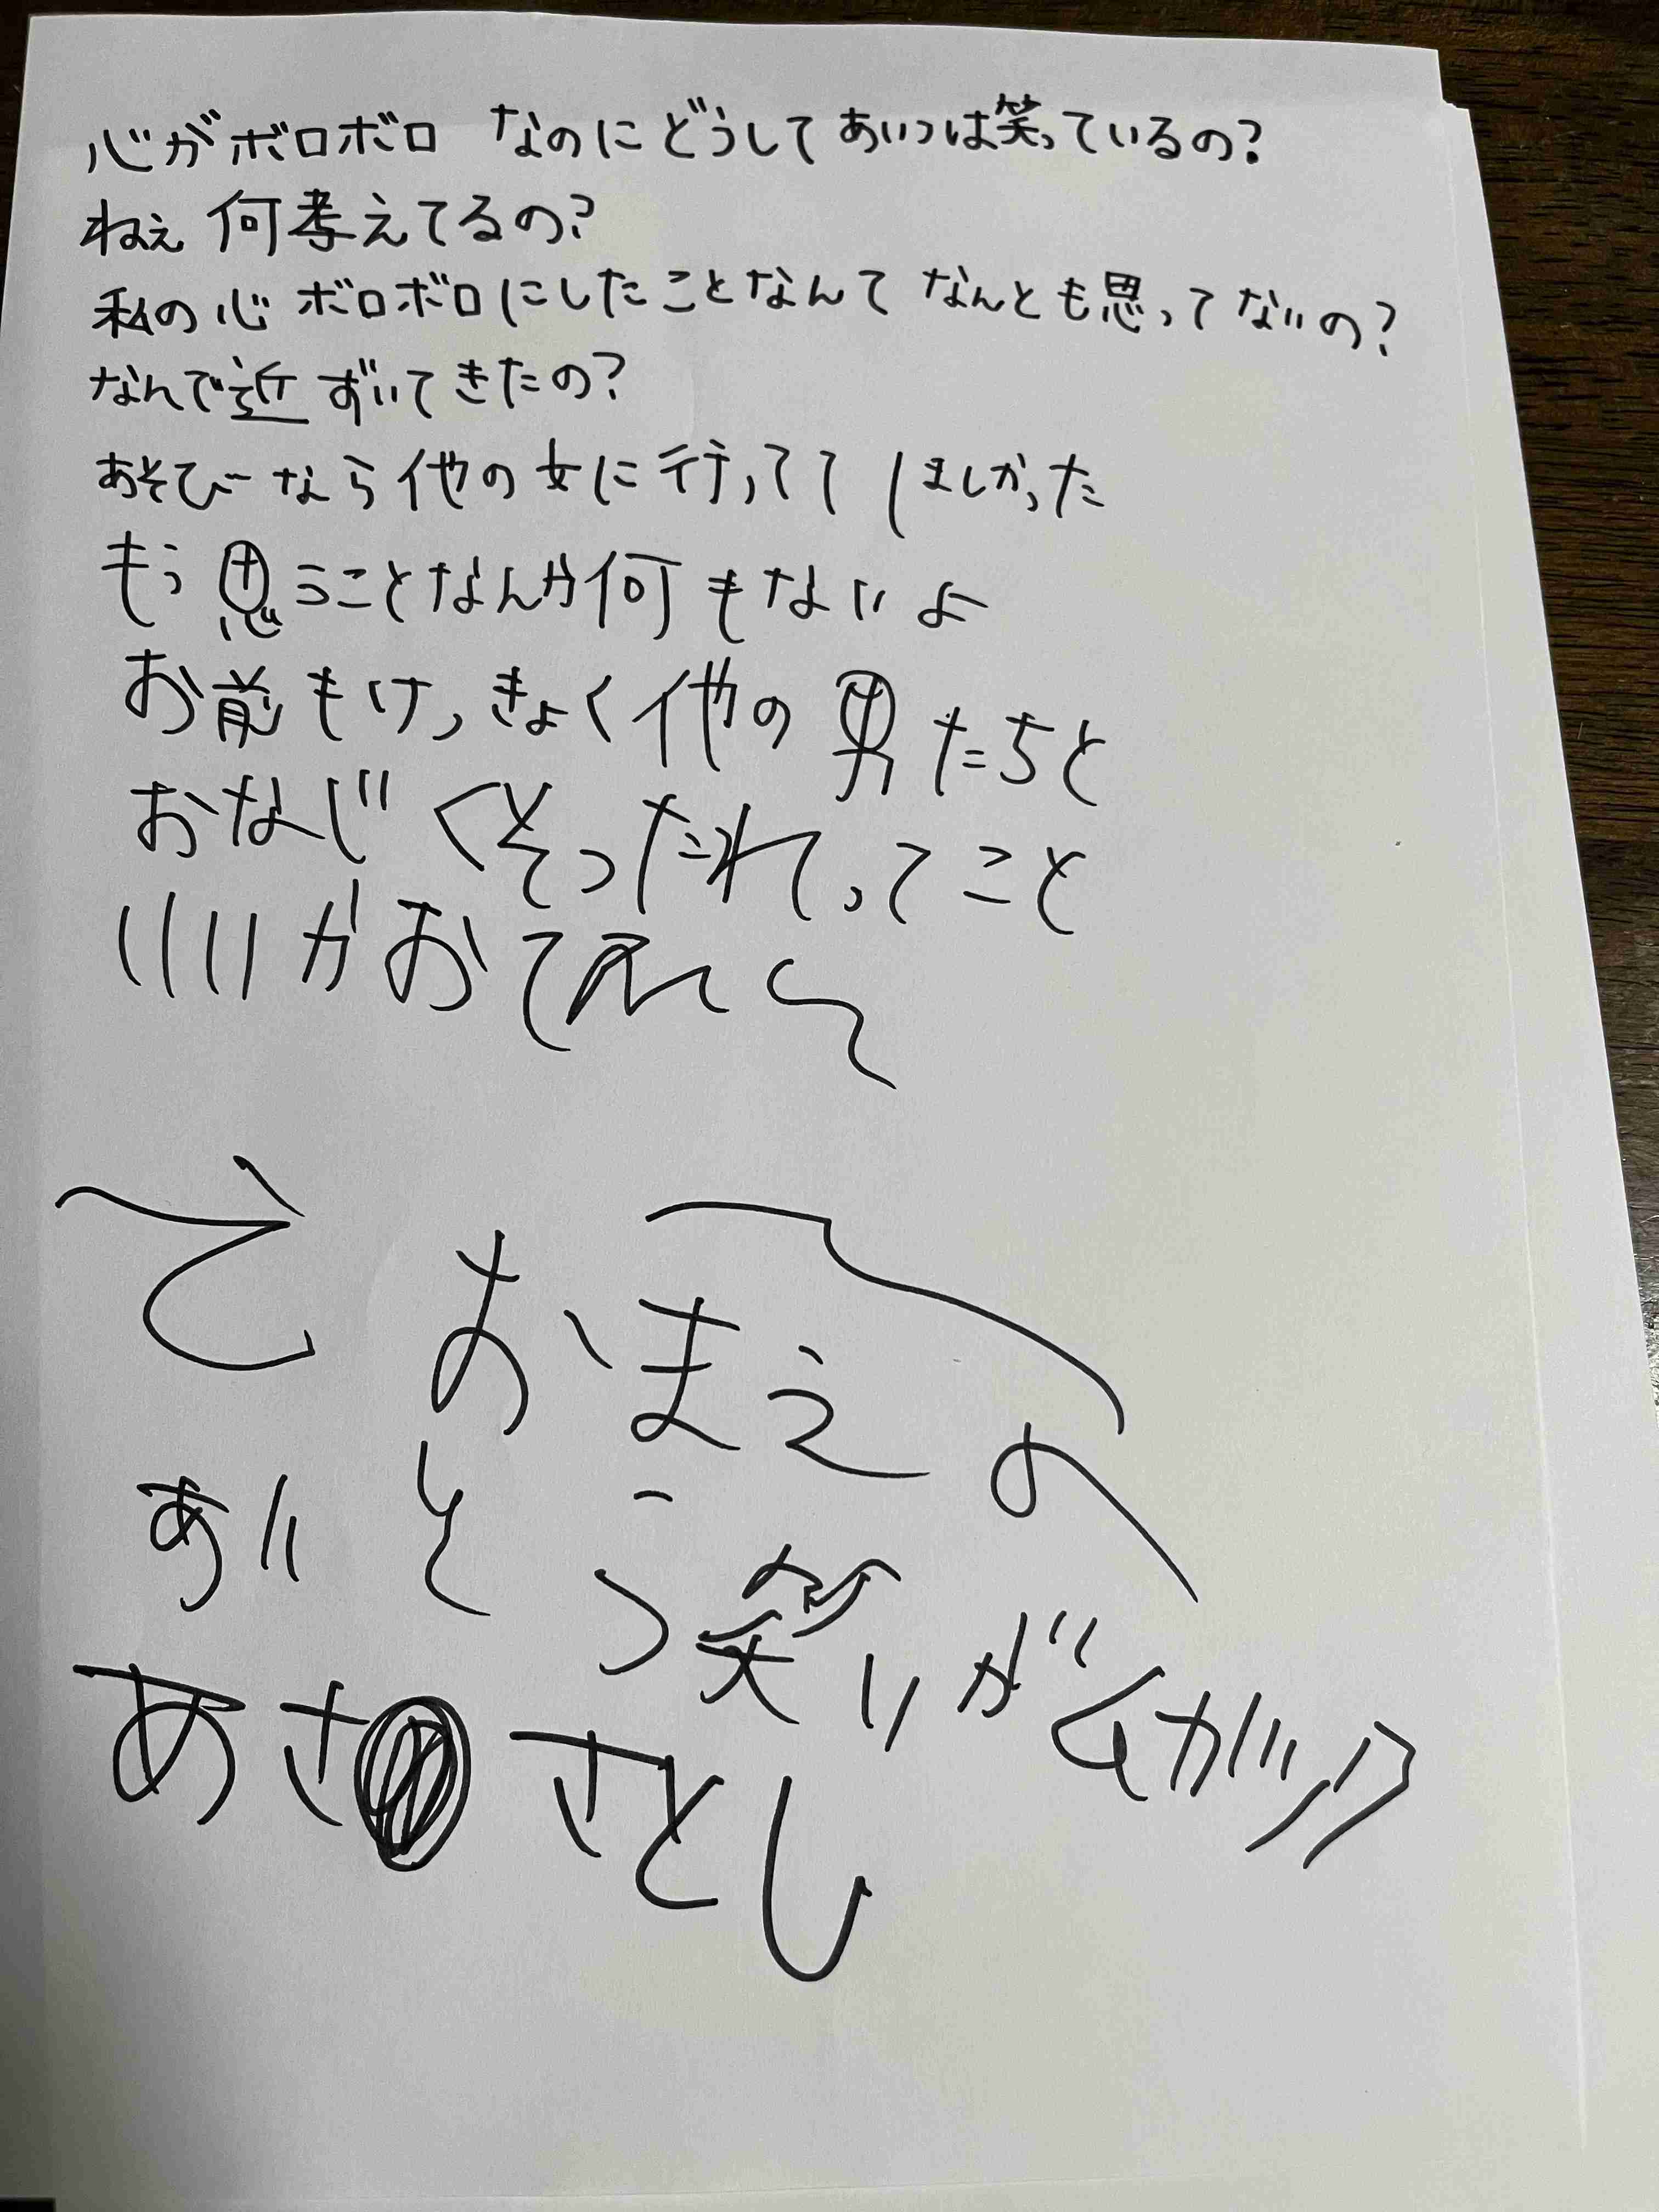 心がボロボロ なのにどうしてあいつは笑っているの?
ねぇ 何考えてるの?
私の心 ボロボロにしたことなんて なんとも思ってないの?
なんで近ずいてきたの?
あそびなら他の女に行ってて ほしかった
もう思うことなんか何もないよ
お前もけっきょく他の男たちと
おなじくそったれってこと
いいかお
で おまえの
あいそう笑いが
あささとし